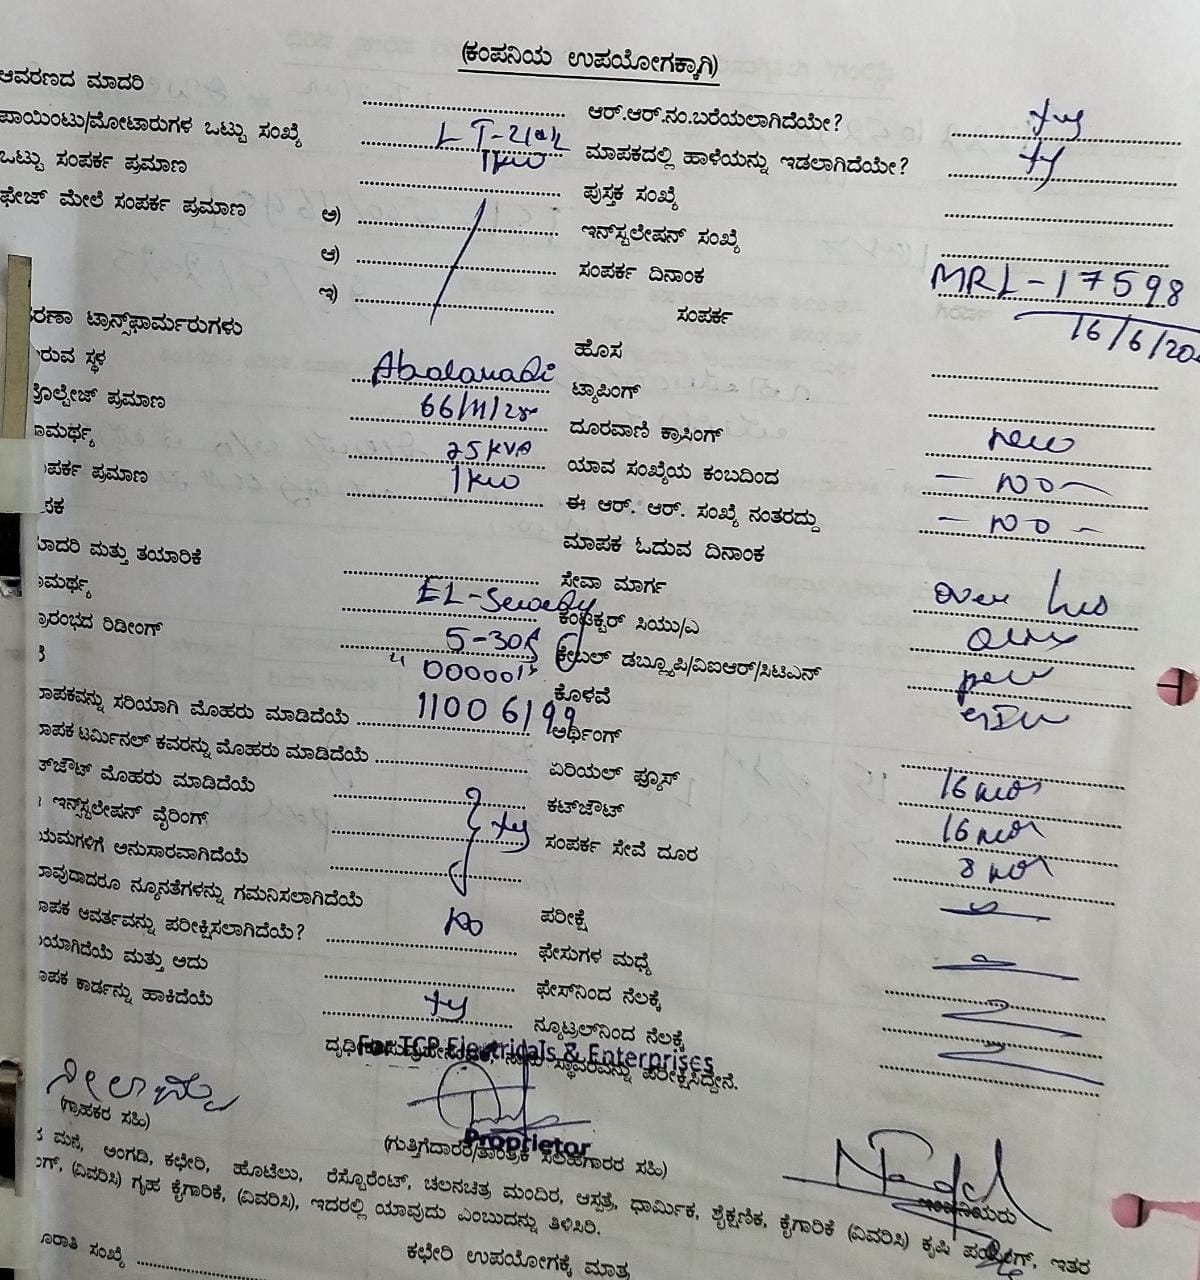 (ಕಂಪನಿಯ ಉಪಯೋಗಕ್ಕಾಗಿ)
ಆವರಣದ ಮಾದರಿ
ಆರ್.ಆರ್.ನಂ.ಬರೆಯಲಾಗಿದೆಯೇ?
ಪಾಯಿಂಟು/ಮೋಟಾರುಗಳ ಒಟ್ಟು ಸಂಖ್ಯೆ
ಮಾಪಕದಲ್ಲಿ ಹಾಳೆಯನ್ನು ಇಡಲಾಗಿದೆಯೇ?
ಒಟ್ಟು ಸಂಪರ್ಕ ಪ್ರಮಾಣ 1KW
ಪುಸ್ತಕ ಸಂಖ್ಯೆ
ಫೇಜ್ ಮೇಲೆ ಸಂಪರ್ಕ ಪ್ರಮಾಣ ಅ)
ಇನ್‌ಸ್ಟಲೇಷನ್ ಸಂಖ್ಯೆ MRL-17598
ಆ)
ಸಂಪರ್ಕ ದಿನಾಂಕ 16/6/20
ಇ)
ಸಂಪರ್ಕ
ರಣಾ ಟ್ರಾನ್ಸ್‌ಫಾರ್ಮರುಗಳು
ಹೊಸ
ರುವ ಸ್ಥಳ
ಟ್ಯಾಪಿಂಗ್ new
ವೋಲ್ಟೇಜ್ ಪ್ರಮಾಣ 66/11/
ದೂರವಾಣಿ ಕ್ರಾಸಿಂಗ್ - NO -
ಾಮರ್ಥ್ಯ 25KVA
ಯಾವ ಸಂಖ್ಯೆಯ ಕಂಬದಿಂದ - NO -
ಂಪರ್ಕ ಪ್ರಮಾಣ 1KW
ಈ ಆರ್. ಆರ್. ಸಂಖ್ಯೆ ನಂತರದ್ದು
ಪಕ
ಮಾಪಕ ಓದುವ ದಿನಾಂಕ
ಮಾದರಿ ಮತ್ತು ತಯಾರಿಕೆ EL-Sewedy
ಸೇವಾ ಮಾರ್ಗ over
ಾಮರ್ಥ್ಯ 5-30
ಕಂಡಕ್ಟರ್ ಸಿಯು/ಎ
ಪ್ರಾರಂಭದ ರಿಡೀಂಗ್ "00000"
ಕೇಬಲ್ ಡಬ್ಲ್ಯೂಪಿ/ವಿಐಆರ್/ಸಿಟಿಎನ್
11006199
ಕೊಳವೆ
ಾಪಕವನ್ನು ಸರಿಯಾಗಿ ಮೊಹರು ಮಾಡಿದೆಯೆ
ಅರ್ಥಿಂಗ್
ಾಪಕ ಟರ್ಮಿನಲ್ ಕವರನ್ನು ಮೊಹರು ಮಾಡಿದೆಯೆ
ಏರಿಯಲ್ ಫ್ಯೂಸ್ 16
ಟ್‌ಔಟ್ ಮೊಹರು ಮಾಡಿದೆಯೆ
ಕಟ್‌ಔಟ್ 16
ಇನ್‌ಸ್ಟಲೇಷನ್ ವೈರಿಂಗ್
ಸಂಪರ್ಕ ಸೇವೆ ದೂರ 8
ಯಮಗಳಿಗೆ ಅನುಸಾರವಾಗಿದೆಯೆ
ಾವುದಾದರೂ ನ್ಯೂನತೆಗಳನ್ನು ಗಮನಿಸಲಾಗಿದೆಯೆ NO
ಪರೀಕ್ಷೆ
ಾಪಕ ಆವರ್ತವನ್ನು ಪರೀಕ್ಷಿಸಲಾಗಿದೆಯೆ?
ಫೇಸುಗಳ ಮಧ್ಯೆ
ಯಾಗಿದೆಯೆ ಮತ್ತು ಅದು
ಫೇಸ್‌ನಿಂದ ನೆಲಕ್ಕೆ
ಾಪಕ ಕಾರ್ಡನ್ನು ಹಾಕಿದೆಯೆ
ನ್ಯೂಟ್ರಲ್‌ನಿಂದ ನೆಲಕ್ಕೆ
For TCP Electricals & Enterprises
ಸ್ಥಾವರವನ್ನು ಪರೀಕ್ಷಿಸಿದ್ದೇನೆ.
(ಗ್ರಾಹಕರ ಸಹಿ)
Proprietor
(ಗುತ್ತಿಗೆದಾರರ/ತಾಂತ್ರಿಕ ಸಲಹಾಗಾರರ ಸಹಿ)
ಮನೆ, ಅಂಗಡಿ, ಕಛೇರಿ, ಹೊಟೆಲು, ರೆಸ್ಟೊರೆಂಟ್, ಚಲನಚಿತ್ರ ಮಂದಿರ, ಆಸ್ಪತ್ರೆ, ಧಾರ್ಮಿಕ, ಶೈಕ್ಷಣಿಕ, ಕೈಗಾರಿಕೆ (ವಿವರಿಸಿ) ಕೃಷಿ ಪಂಪಿಂಗ್, ಇತರ
ಂಗ್, (ವಿವರಿಸಿ) ಗೃಹ ಕೈಗಾರಿಕೆ, (ವಿವರಿಸಿ), ಇದರಲ್ಲಿ ಯಾವುದು ಎಂಬುದನ್ನು ತಿಳಿಸಿರಿ.
ಕಛೇರಿ ಉಪಯೋಗಕ್ಕೆ ಮಾತ್ರ
ಸಂಖ್ಯೆ